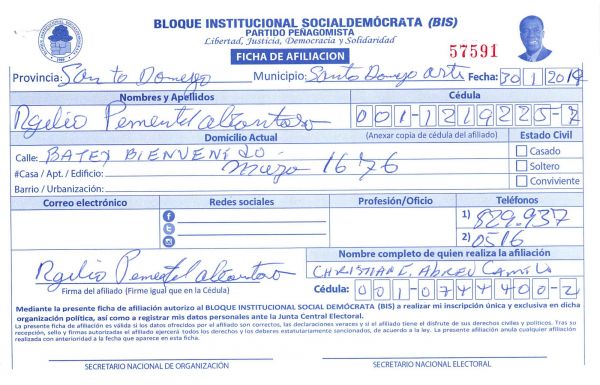 BLOQUE INSTITUCIONAL SOCIALDEMÓCRATA (BIS)
PARTIDO PEÑAGOMISTA
Libertad, Justicia, Democracia y Solidaridad
FICHA DE AFILIACION
57591
Provincia: Santo Domingo Municipio: Santo Domgo Fecha: 30 1 2018
Nombres y Apellidos Cédula
Rgelio Pementel alcantara 001-1219225-2
Domicilio Actual (Anexar copia de cédula del afiliado) Estado Civil
Calle: BATEY BIENVENIDO Casado
#Casa / Apt. / Edificio: 1676 Soltero
Barrio / Urbanización: Conviviente
Correo electrónico Redes sociales Profesión/Oficio Teléfonos
1) 829-937
2) 0516
Nombre completo de quien realiza la afiliación
Rgelio Pementel alcantara CHRISTIAN E. ABREU CAMILO
Firma del afiliado (Firme igual que en la Cédula) Cédula: 001-0744400-2
Mediante la presente ficha de afiliación autorizo al BLOQUE INSTITUCIONAL SOCIAL DEMÓCRATA (BIS) a realizar mi inscripción única y exclusiva en dicha
organización política, así como a registrar mis datos personales ante la Junta Central Electoral.
La presente ficha de afiliación es válida si los datos ofrecidos por el afiliado son correctos, las declaraciones veraces y si el afiliado tiene el disfrute de sus derechos civiles y políticos. Tras su
recepción, sello y firmas autorizadas el afiliado ejercerá todos los derechos y los deberes estatutariamente sancionados, de acuerdo a la ley. La presente afiliación anula cualquier afiliación
realizada con anterioridad a la fecha que aparece en esta ficha.
SECRETARIO NACIONAL DE ORGANIZACIÓN SECRETARIO NACIONAL ELECTORAL